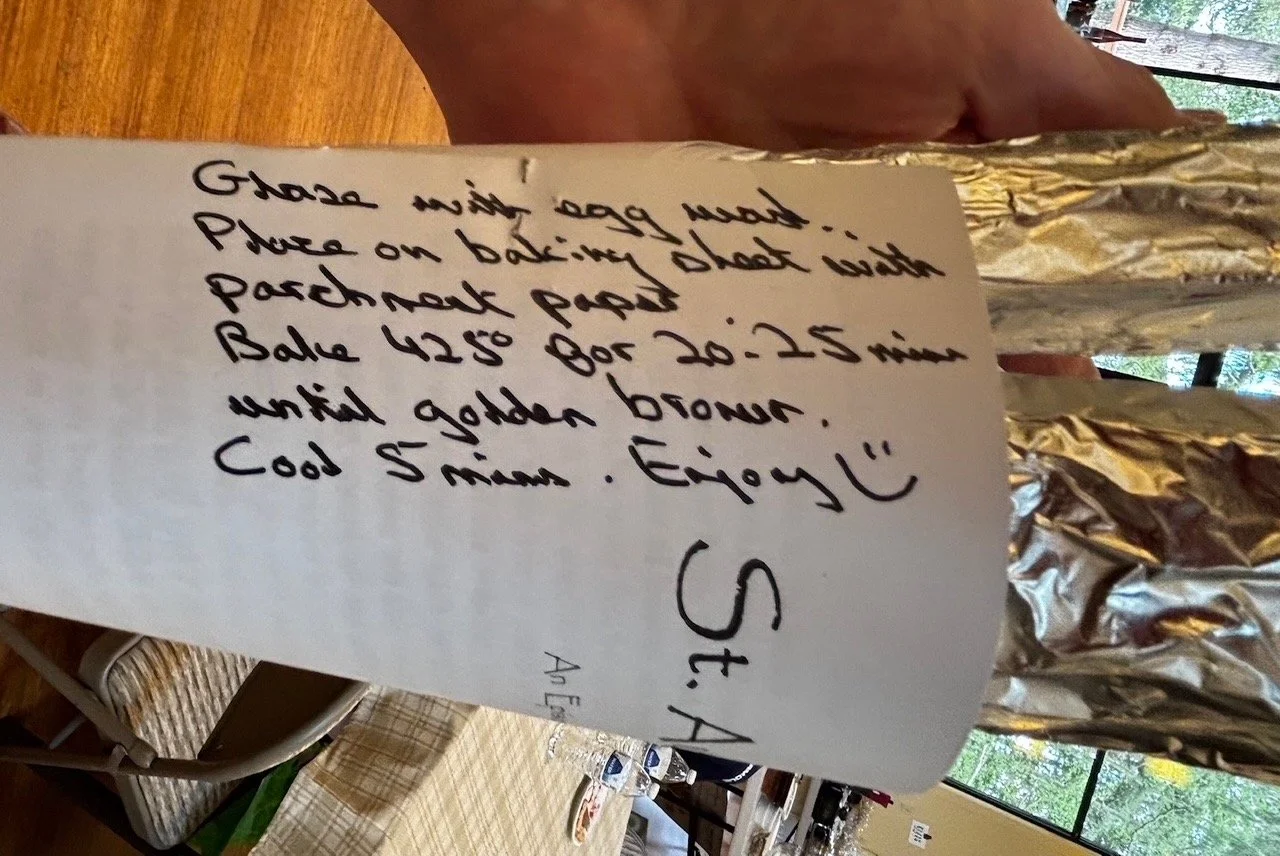 Glaze with egg wash..
Place on baking sheet with
parchment paper
Bake 425° for 20-25 mins
until golden brown.
Cool 5 mins. Enjoy
St. A
An Ep